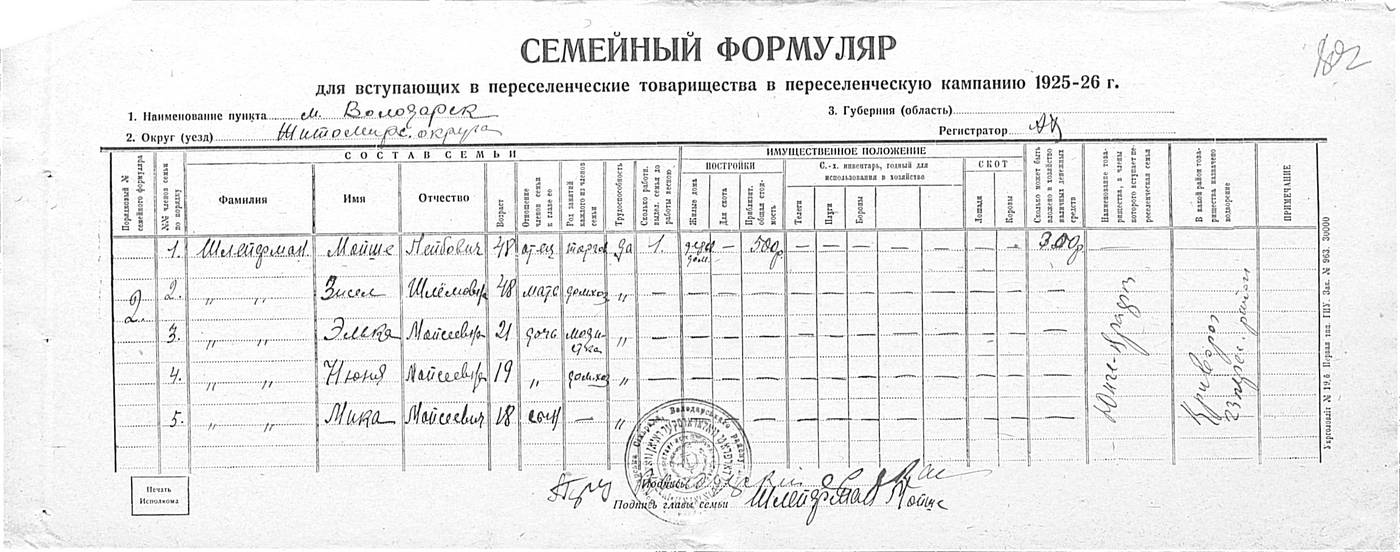 СЕМЕЙНЫЙ ФОРМУЛЯР
для вступающих в переселенческие товарищества в переселенческую кампанию 1925-26 г.
1. Наименование пункта м. Володарск
3. Губерния (область)
2. Округ (уезд) Житомирс. округа
Регистратор
СОСТАВ СЕМЬИ
ИМУЩЕСТВЕННОЕ ПОЛОЖЕНИЕ
ПОСТРОЙКИ
С.-х. инвентарь, годный для использования в хозяйство
СКОТ
Порядковый № семейного формуляра
№№ членов семьи по порядку
Фамилия
Имя
Отчество
Возраст
Отношение членов семьи к главе ее
Род занятий каждого из членов семьи
Трудоспособность
Сколько работн. выдел. семья до работы весною
Жилые дома
Для скота
Приблизит. общая стоимость
Телеги
Плуги
Бороны
Лошади
Коровы
Сколько может быть вложено в хозяйство наличных денежных средств
Наименование товарищества, в члены которого вступает переселенческая семья
В какой район товарищества назначено водворение
ПРИМЕЧАНИЕ
1. Шлейфман Мойше Лейбович 48 отец торгов да 1. дом. — 500р — — — — — — — 300р
2
2. " " Зисел Шлёмовн 48 мать домхоз " — — — — — — — — — — — —
3. " " Элка Мойсеевн 21 дочь моди-стка " — — — — — — — — — — — —
4. " " Нюня Мойсеевн 19 " домхоз " — — — — — — — — — — — —
5. " " Мика Мойсеевич 18 сын — " — — — — — — — — — —
Криворог
район
Печать Исполкома
Подписи
Подпись главы семьи Шлейфман Мойше
Укрголовліт № 19,6 Первая тип. ГИУ. Зак. № 963. 30000